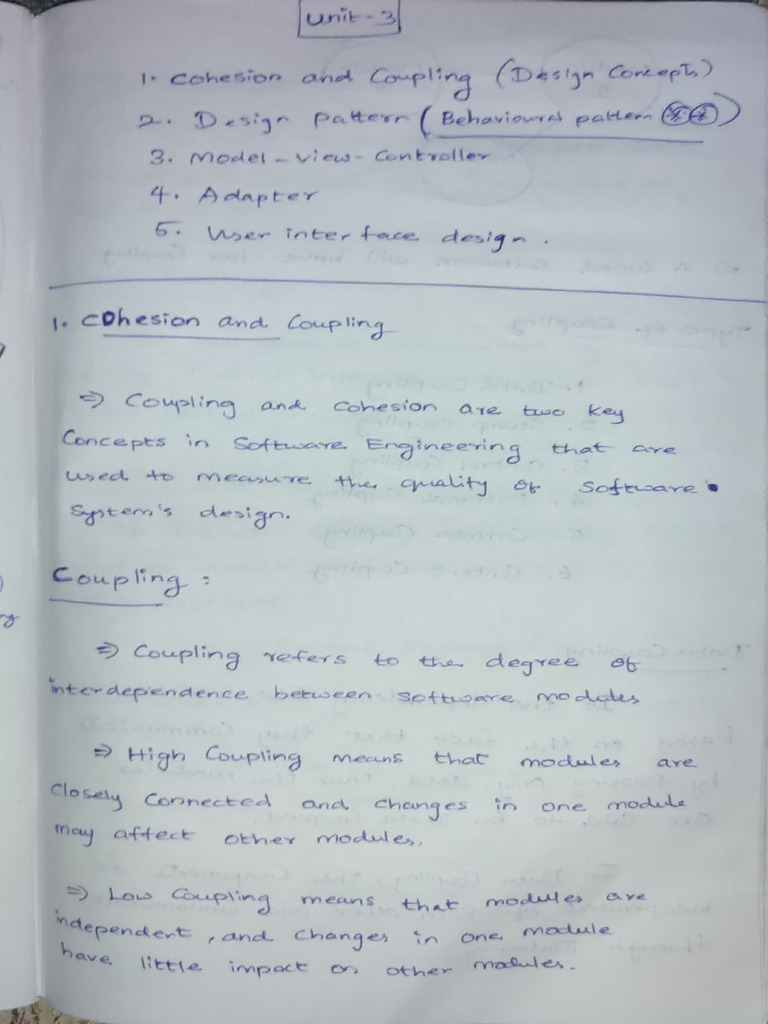 Unit - 3
1. Cohesion and Coupling (Design Concepts)
2. Design pattern (Behavioural pattern **)
3. Model - view - Controller
4. Adapter
5. User interface design.
1. Cohesion and Coupling
⇒ Coupling and cohesion are two key
Concepts in Software Engineering that are
used to measure the quality of software
System's design.
Coupling :
⇒ Coupling refers to the degree of
interdependence between software modules
⇒ High Coupling means that modules are
Closely Connected and changes in one module
may affect other modules.
⇒ Low Coupling means that modules are
independent, and changes in one module
have little impact on other modules.